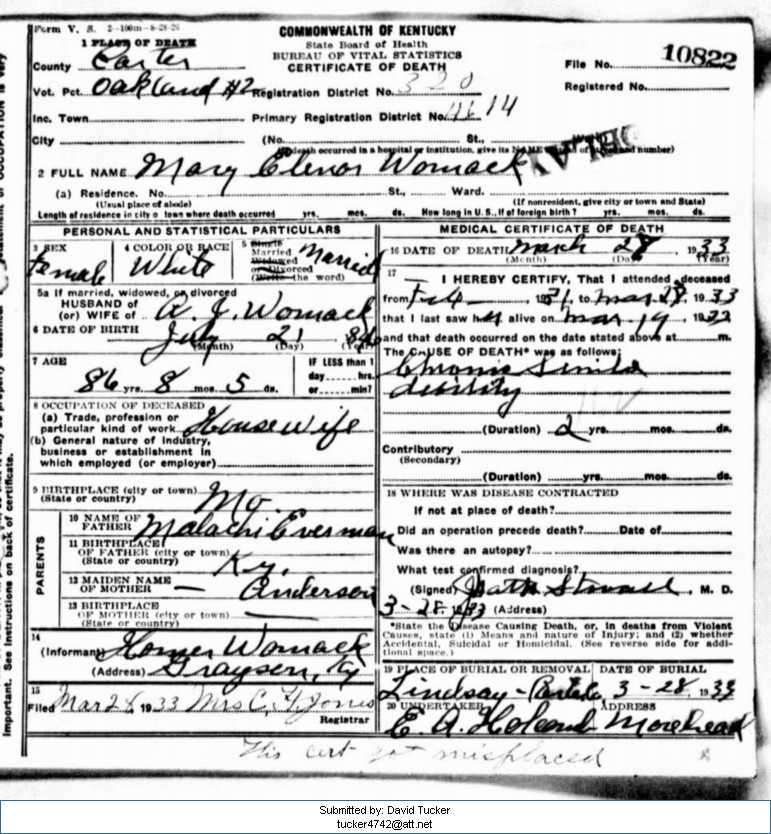 Form V. S. 2-100m-8-28-26
COMMONWEALTH OF KENTUCKY
State Board of Health
BUREAU OF VITAL STATISTICS
CERTIFICATE OF DEATH
File No. 10822
Registered No.
1 PLACE OF DEATH
County Carter
Vot. Pct. Oakland #2 Registration District No. 320
Inc. Town Primary Registration District No. 14
City (No. St., Ward)
2 FULL NAME Mary Elenor Womack
(a) Residence. No. St., Ward.
(Usual place of abode) (If nonresident, give city or town and State)
Length of residence in city o town where death occurred yrs. mos. ds. How long in U. S., if of foreign birth? yrs. mos. ds.
PERSONAL AND STATISTICAL PARTICULARS
3 SEX
Female
4 COLOR OR RACE
White
5 Single
Married
Widowed
or Divorced
(Write the word)
Married
5a If married, widowed, or divorced
HUSBAND of
(or) WIFE of A. J. Womack
6 DATE OF BIRTH July 21 846
(Month) (Day) (Year)
7 AGE
86 yrs. 8 mos. 5 ds.
IF LESS than 1
day hrs.
or min?
8 OCCUPATION OF DECEASED
(a) Trade, profession or
particular kind of work House wife
(b) General nature of industry,
business or establishment in
which employed (or employer)
9 BIRTHPLACE (city or town)
(State or country) Mo.
PARENTS
10 NAME OF
FATHER Malachi Everman
11 BIRTHPLACE
OF FATHER (city or town)
(State or country) Ky.
12 MAIDEN NAME
OF MOTHER — Anderson
13 BIRTHPLACE
OF MOTHER (city or town)
(State or country) —
14
(Informant) Homer Womack
(Address) Grayson, Ky
15
Filed Mar 28, 1933 Mrs C. H. Jones
Registrar
MEDICAL CERTIFICATE OF DEATH
16 DATE OF DEATH March 28, 1933
(Month) (Day) (Year)
17 I HEREBY CERTIFY, That I attended deceased
from Feb — 1931, to Mar 28, 1933
that I last saw her alive on Mar 19, 1933
and that death occurred on the date stated above at m.
The CAUSE OF DEATH* was as follows:
Chronic Senile
debility
(Duration) 2 yrs. mos. ds.
Contributory
(Secondary)
(Duration) yrs. mos. ds.
18 WHERE WAS DISEASE CONTRACTED
If not at place of death?
Did an operation precede death? Date of
Was there an autopsy?
What test confirmed diagnosis?
(Signed) , M. D.
3-28, 1933 (Address)
*State the Disease Causing Death, or, in deaths from Violent
Causes, state (1) Means and nature of Injury; and (2) whether
Accidental, Suicidal or Homicidal. (See reverse side for addi-
tional space.)
19 PLACE OF BURIAL OR REMOVAL DATE OF BURIAL
Lindsay - Carter Co 3-28, 1933
20 UNDERTAKER ADDRESS
E. A. Holcomb Morehead
This cert got misplaced
Important. See instructions on back of certificate.
Submitted by: David Tucker
tucker4742@att.net